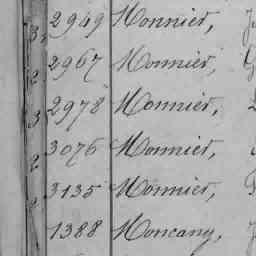 3, 2949 Monnier,
2 2967 Monnier,
3 2978 Monnier,
2 3076 Monnier,
2 3135 Monnier,
1388 Moncany,